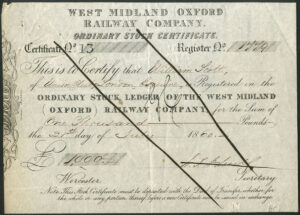 WEST MIDLAND OXFORD
RAILWAY COMPANY.
ORDINARY STOCK CERTIFICATE.
Certificate No 13 Register No
This is to Certify that William
of London, Esquire, is Registered in the
ORDINARY STOCK LEDGER OF THE WEST MIDLAND
(OXFORD) RAILWAY COMPANY, for the Sum of
One Thousand Pounds
the day of 186
£ 1000
Worcester Secretary
Note: This Stock Certificate must be deposited with the Deed of Transfer, whether for
the whole or any portion thereof before a new Certificate can be issued in exchange.